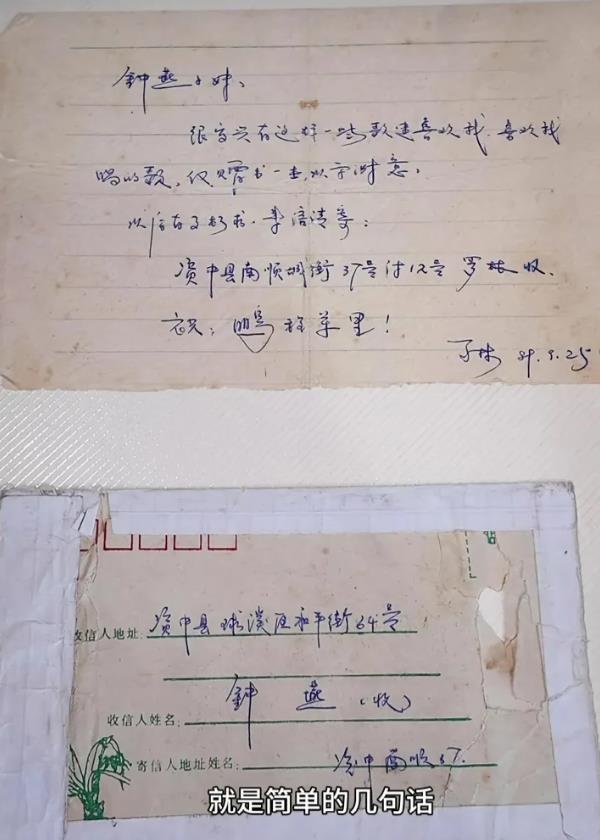 钟燕小妹:
很高兴有这样一些歌迷喜欢我,喜欢我
唱的歌,仅赠书一本,以示谢意。
以后有
资中县南顺城街37号付12号 罗林 收
祝:鹏程万里!
林 89.9.25
收信人地址:资中县球溪区和平街64号
钟 燕(收)
收信人姓名:
寄信人地址姓名:资中南顺37.
就是简单的几句话